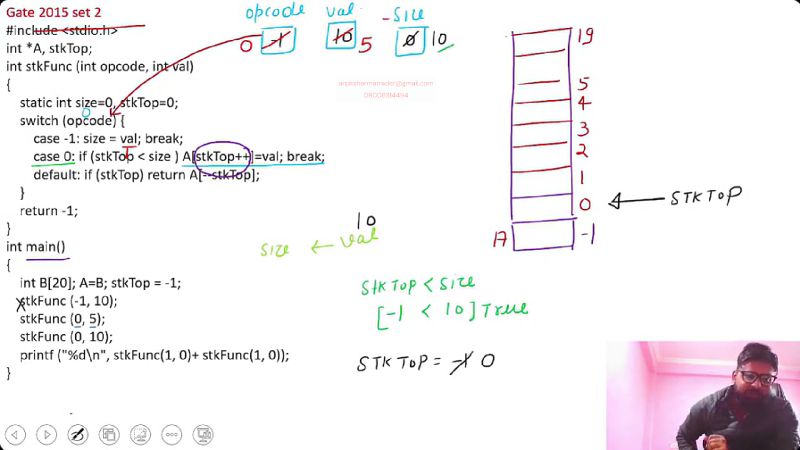 Gate 2015 set 2
opcode val -size
#include <stdio.h>
0 -1 10 5 0 10
int *A, stkTop;
int stkFunc (int opcode, int val)
{
static int size=0, stkTop=0;
0
switch (opcode) {
case -1: size = val; break;
T
case 0: if (stkTop < size ) A[stkTop++]=val; break;
default: if (stkTop) return A[--stkTop];
}
return -1;
}
int main()
{
int B[20]; A=B; stkTop = -1;
X stkFunc (-1, 10);
stkFunc (0, 5);
stkFunc (0, 10);
printf ("%d\n", stkFunc(1, 0)+ stkFunc(1, 0));
}
10
size ← val
stkTop < size
[-1 < 10] True
STKTOP = -1 0
19
5
4
3
2
1
0 ← STKTOP
A -1